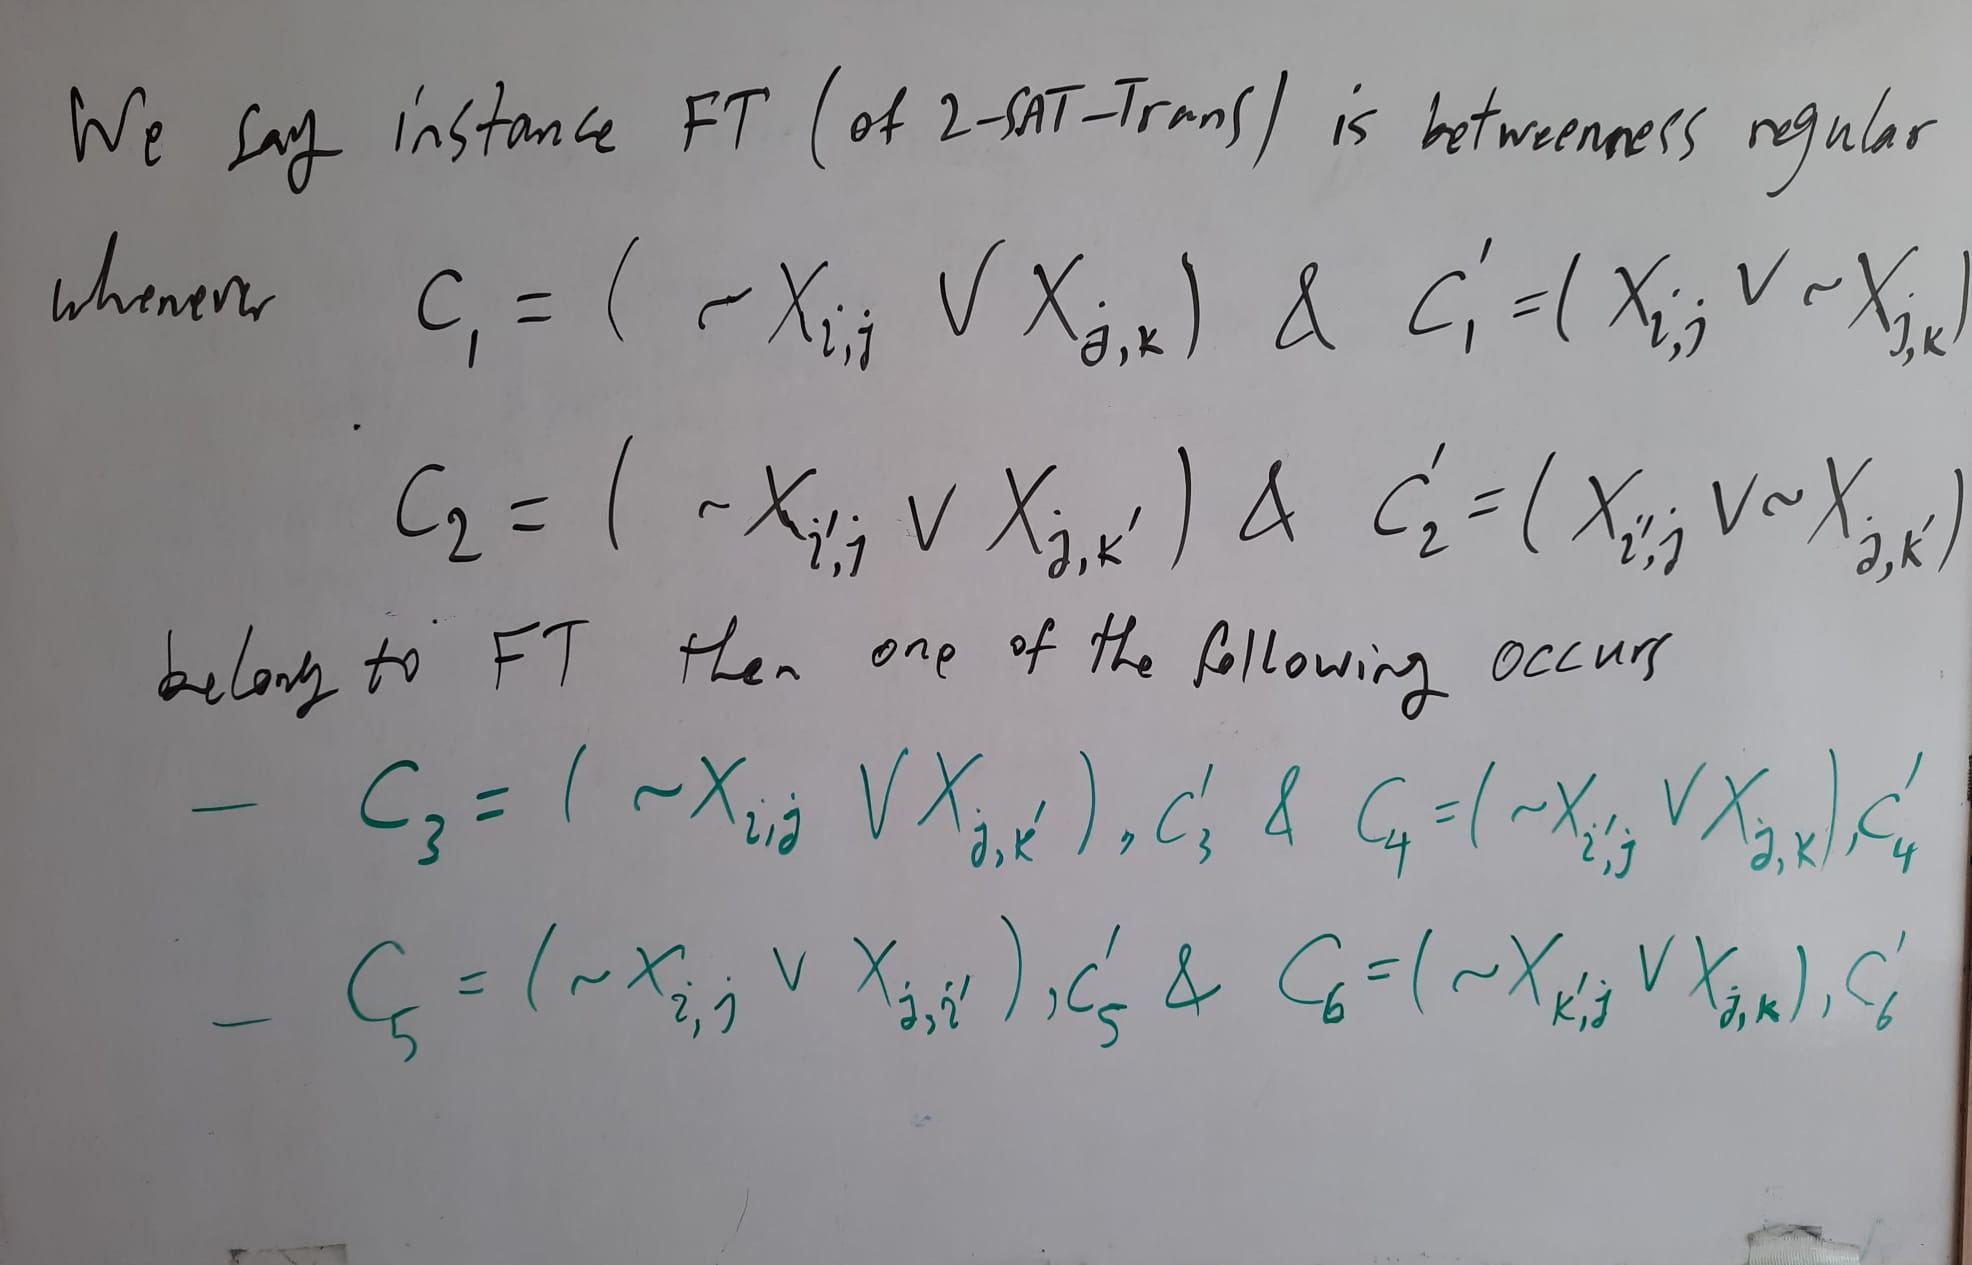 We say instance FT (of 2-SAT-Trans) is betweenness regular
whenever C₁ = ( ~X_{i,j} ∨ X_{j,k} ) & C₁' = ( X_{i,j} ∨ ~X_{j,k} )
C₂ = ( ~X_{i',j} ∨ X_{j,k'} ) & C₂' = ( X_{i',j} ∨ ~X_{j,k'} )
belong to FT then one of the following occurs
– C₃ = ( ~X_{i,j} ∨ X_{j,k'} ), C₃' & C₄ = ( ~X_{i',j} ∨ X_{j,k} ), C₄'
– C₅ = ( ~X_{i,j} ∨ X_{j,i'} ), C₅' & C₆ = ( ~X_{k',j} ∨ X_{j,k} ), C₆'